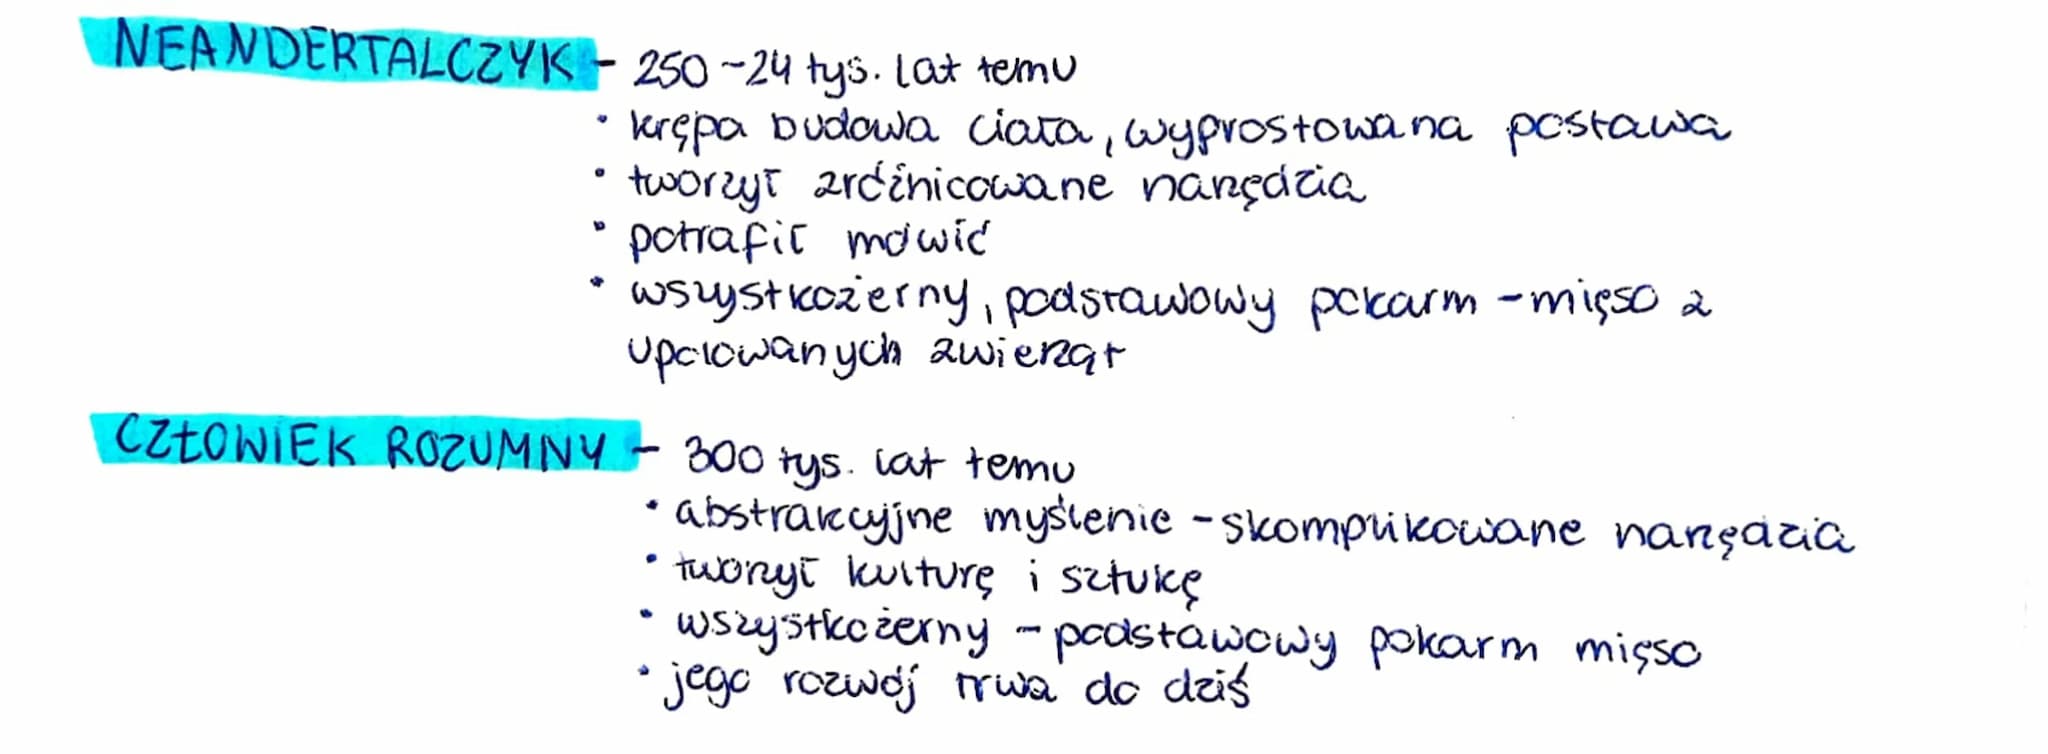 NEANDERTALCZYK - 250-24 tys. lat temu
• krępa budowa ciała, wyprostowana postawa
• tworzył zróżnicowane narzędzia
• potrafił mówić
• wszystkożerny, podstawowy pokarm - mięso z
upolowanych zwierząt
CZŁOWIEK ROZUMNY - 300 tys. lat temu
• abstrakcyjne myślenie - skomplikowane narzędzia
• tworzył kulturę i sztukę
• wszystkożerny - podstawowy pokarm mięso
• jego rozwój trwa do dziś